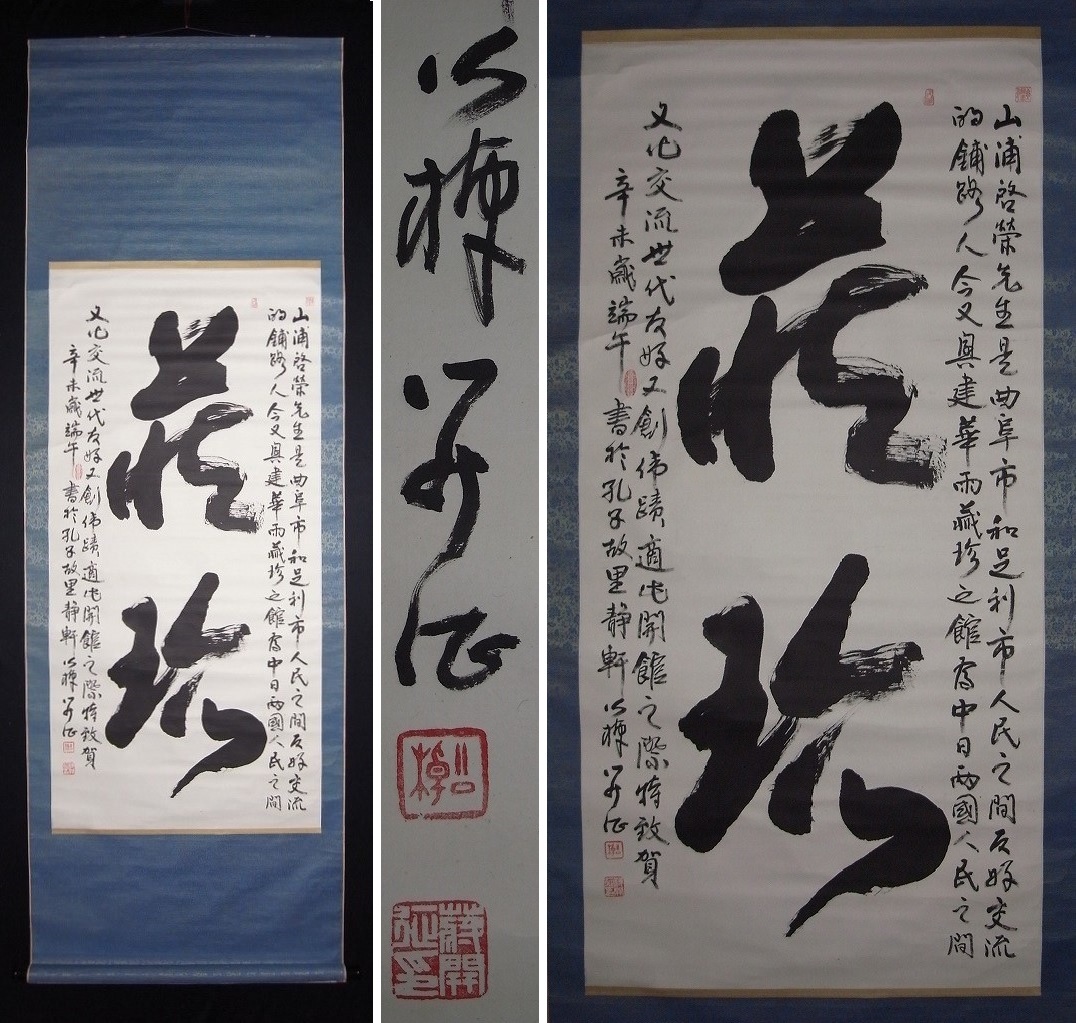 山浦啓榮先生是曲阜市和足利市人民之間友好交流
的鋪路人今又興建華雨藏珍之館為中日兩國人民之間
藏珍
文化交流世代友好又創伟蹟適此開館之際特致賀
辛未歲端午書於孔子故里静軒
山浦啓榮先生是曲阜市和足利市人民之間友好交流
的鋪路人今又興建華雨藏珍之館為中日兩國人民之間
藏珍
文化交流世代友好又創伟蹟適此開館之際特致賀
辛未歲端午書於孔子故里静軒